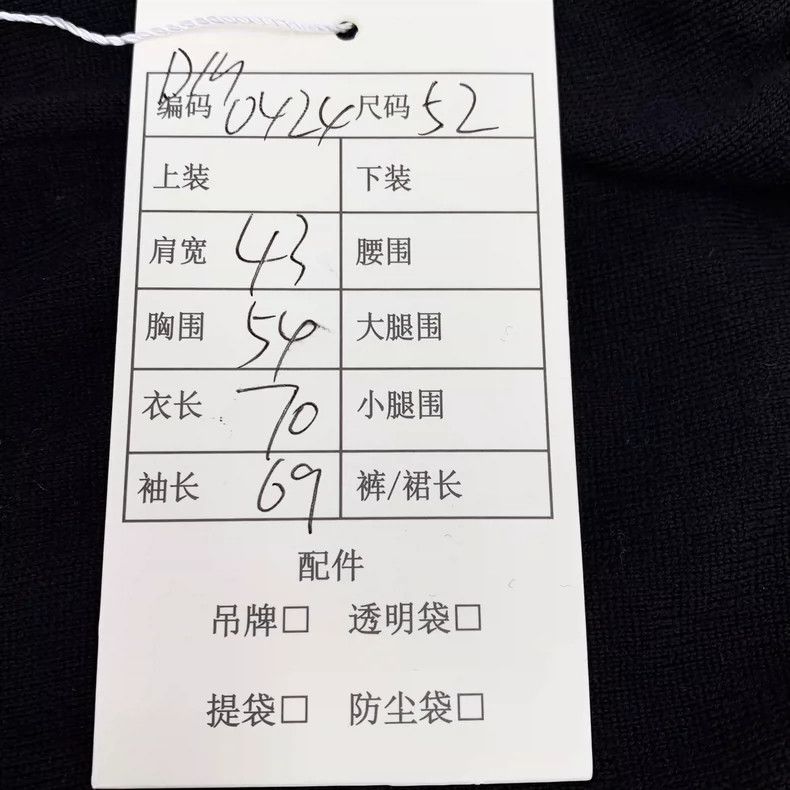 编码 0424 尺码 52
上装 下装
肩宽 43 腰围
胸围 54 大腿围
衣长 70 小腿围
袖长 69 裤/裙长
配件
吊牌□ 透明袋□
提袋□ 防尘袋□